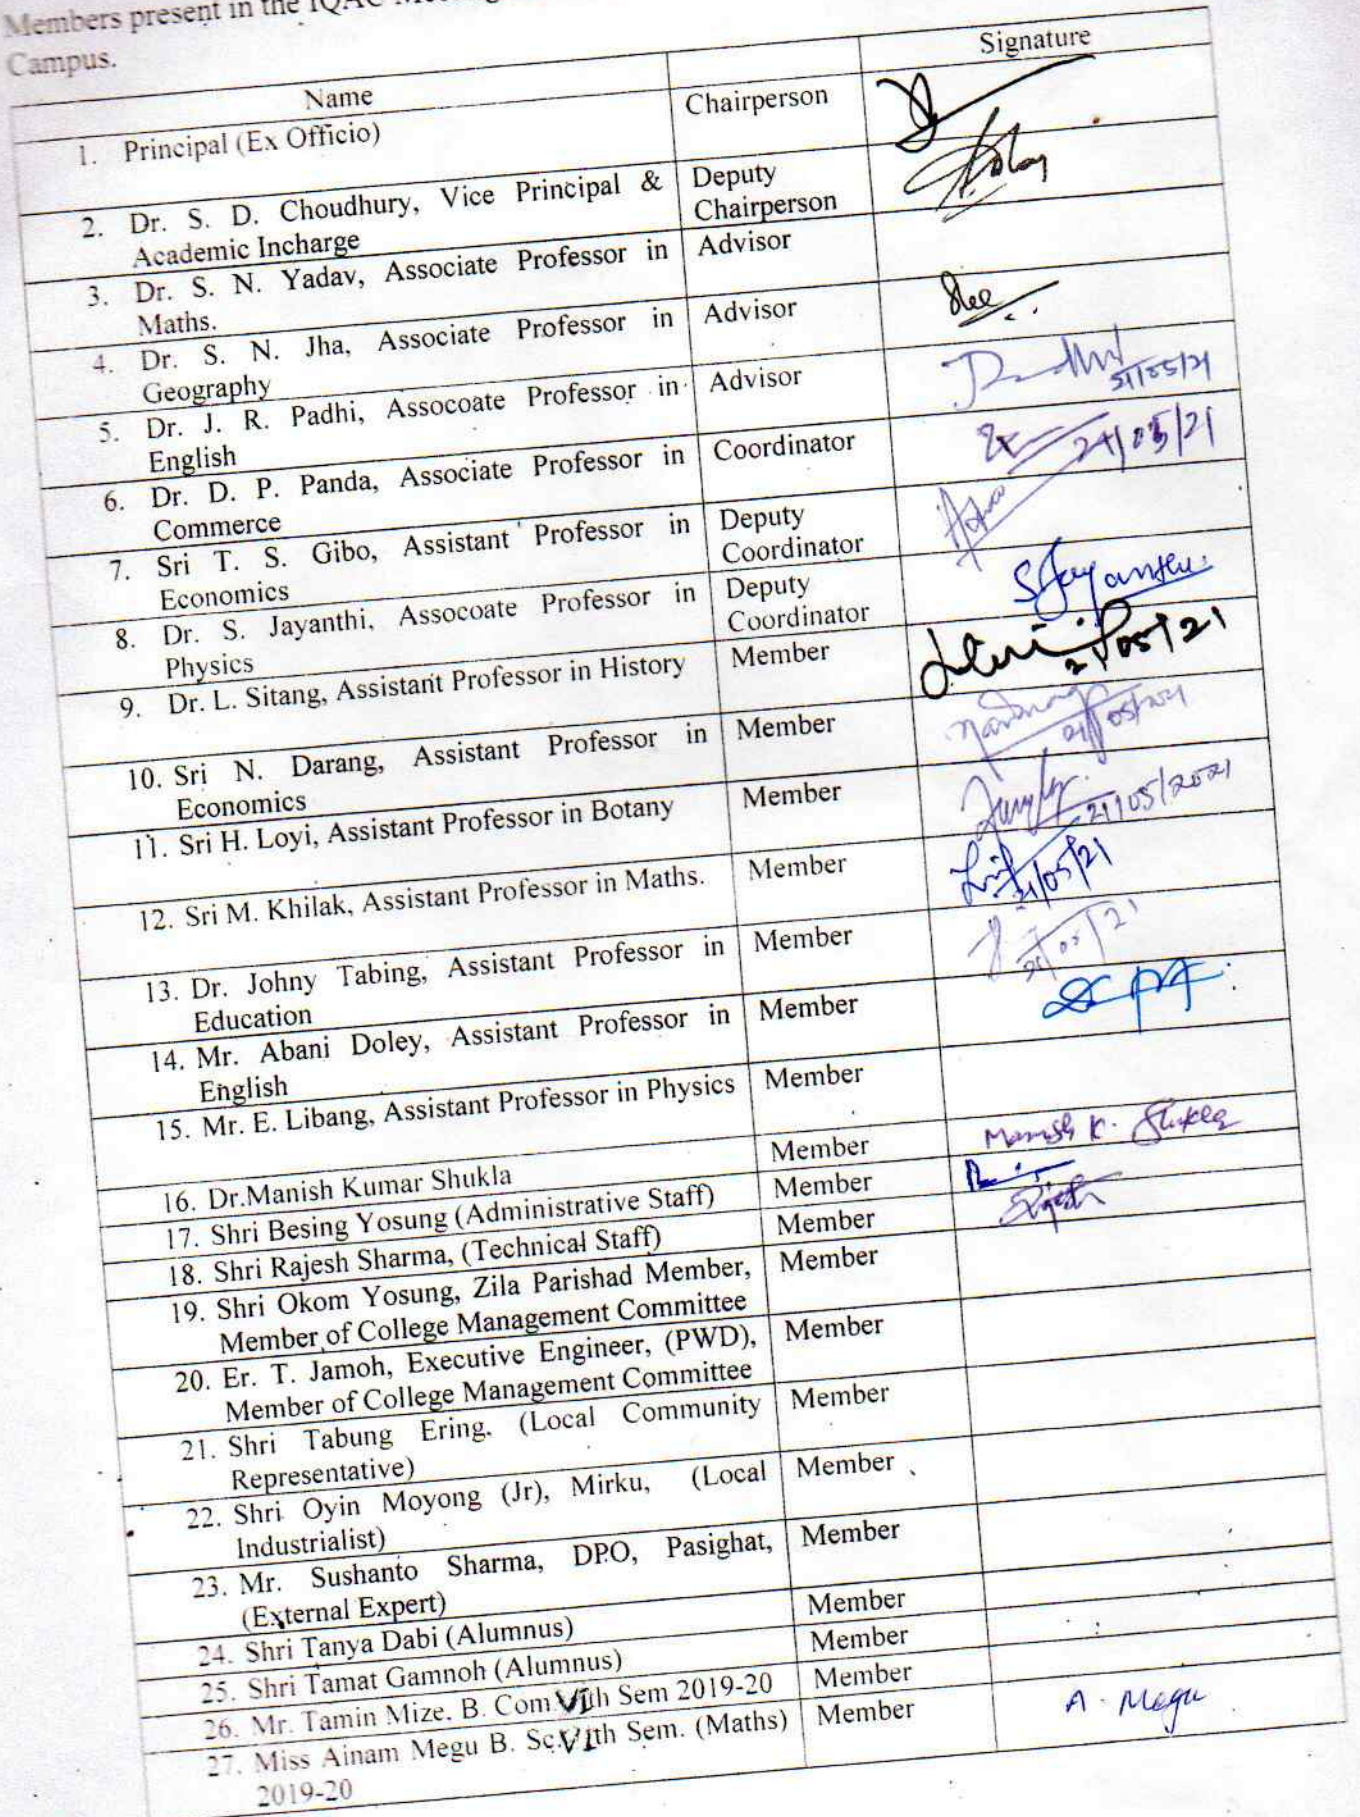 Members present in the IQAC
Campus.
Name Signature
1. Principal (Ex Officio) Chairperson
2. Dr. S. D. Choudhury, Vice Principal & Deputy
Academic Incharge Chairperson
3. Dr. S. N. Yadav, Associate Professor in Advisor
Maths.
4. Dr. S. N. Jha, Associate Professor in Advisor
Geography
5. Dr. J. R. Padhi, Assocoate Professor in Advisor
English 21/05/21
6. Dr. D. P. Panda, Associate Professor in Coordinator 21/05/21
Commerce
7. Sri T. S. Gibo, Assistant Professor in Deputy
Economics Coordinator
8. Dr. S. Jayanthi, Assocoate Professor in Deputy S Jayanthi
Physics Coordinator
9. Dr. L. Sitang, Assistant Professor in History Member 21/05/21
10. Sri N. Darang, Assistant Professor in Member
Economics 21/05/2021
11. Sri H. Loyi, Assistant Professor in Botany Member 21/05/2021
12. Sri M. Khilak, Assistant Professor in Maths. Member 21/05/21
13. Dr. Johny Tabing, Assistant Professor in Member 21/05/21
Education
14. Mr. Abani Doley, Assistant Professor in Member
English
15. Mr. E. Libang, Assistant Professor in Physics Member
16. Dr.Manish Kumar Shukla Member Manish K. Shukla
17. Shri Besing Yosung (Administrative Staff) Member
18. Shri Rajesh Sharma, (Technical Staff) Member Rajesh
19. Shri Okom Yosung, Zila Parishad Member, Member
Member of College Management Committee
20. Er. T. Jamoh, Executive Engineer, (PWD), Member
Member of College Management Committee
21. Shri Tabung Ering. (Local Community Member
Representative)
22. Shri Oyin Moyong (Jr), Mirku, (Local Member
Industrialist)
23. Mr. Sushanto Sharma, DPO, Pasighat, Member
(External Expert)
24. Shri Tanya Dabi (Alumnus) Member
25. Shri Tamat Gamnoh (Alumnus) Member
26. Mr. Tamin Mize. B. Com VIth Sem 2019-20 Member
27. Miss Ainam Megu B. Sc.VIth Sem. (Maths) Member A. Megu
2019-20